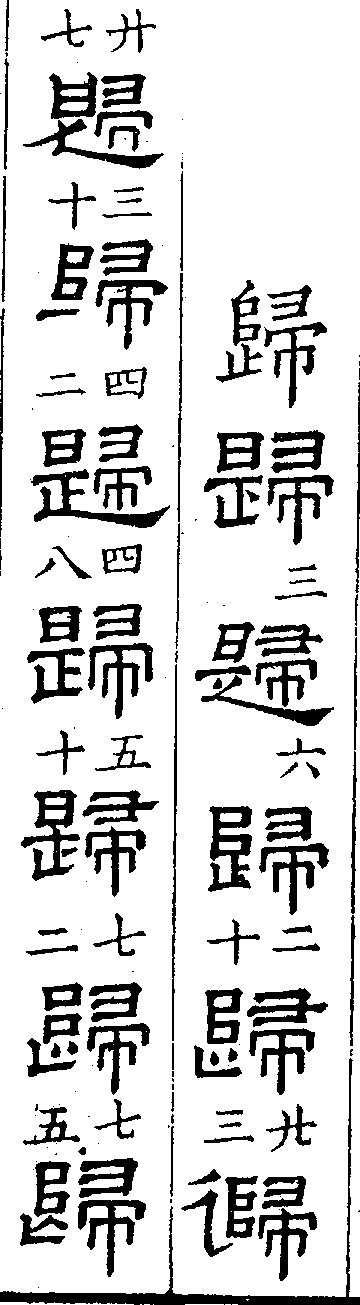 歸歸三歸六歸二十歸廿三歸
廿七歸三十歸四二歸四八歸五十歸七二歸七五歸